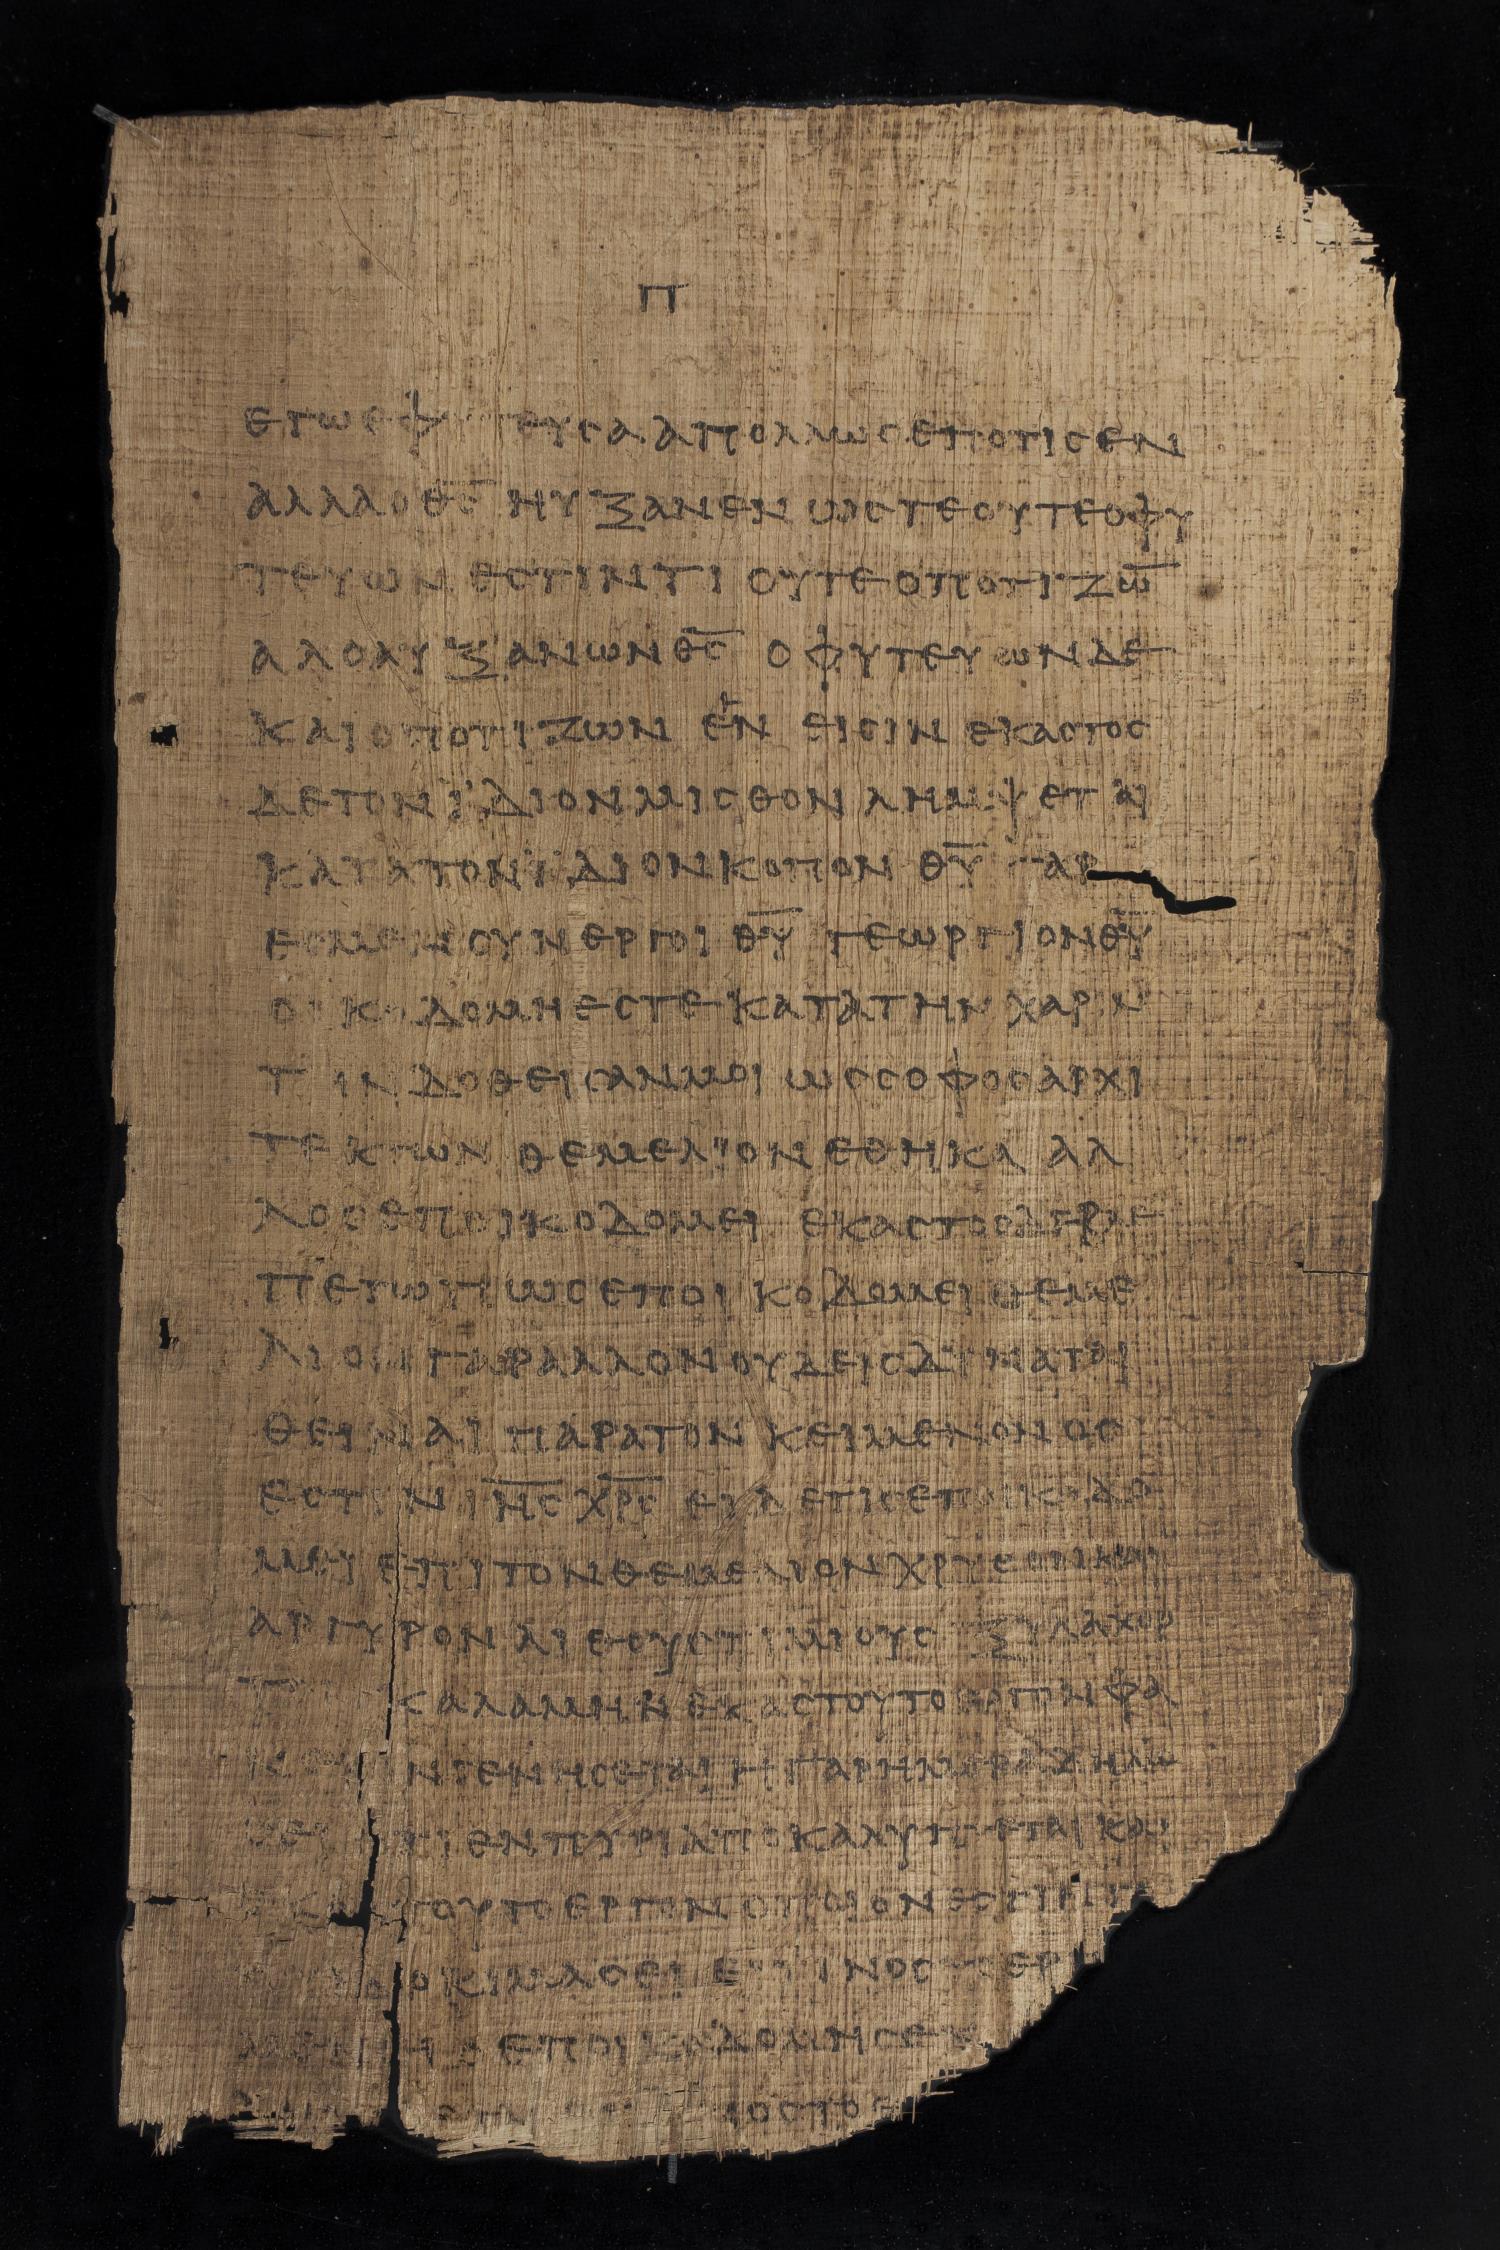 Π
ΕΓΩΕΦΥΤΕΥϹΑΑΠΟΛΛΩϹΕΠΟΤΙϹΕΝ
ΑΛΛΑΟΘ̅Ϲ̅ ΗΥΞΑΝΕΝ ΩϹΤΕΟΥΤΕΟΦΥ
ΤΕΥΩΝ ΕϹΤΙΝΤΙ ΟΥΤΕΟΠΟΤΙΖΩ̅
ΑΛΛΟΑΥΞΑΝΩΝΘ̅Ϲ̅ ΟΦΥΤΕΥΩΝΔΕ
ΚΑΙΟΠΟΤΙΖΩΝ ΕΝ ΕΙϹΙΝ ΕΚΑϹΤΟϹ
ΔΕΤΟΝΪΔΙΟΝΜΙϹΘΟΝ ΛΗΜΨΕΤΑΙ
ΚΑΤΑΤΟΝΪΔΙΟΝΚΟΠΟΝ Θ̅Υ̅ ΓΑΡ
ΕϹΜΕΝϹΥΝΕΡΓΟΙ Θ̅Υ̅ ΓΕΩΡΓΙΟΝΘ̅Υ̅
ΟΙΚΟΔΟΜΗΕϹΤΕΚΑΤΑΤΗΝ ΧΑΡΙΝ
ΤΗΝΔΟΘΕΙϹΑΝΜΟΙ ΩϹϹΟΦΟϹΑΡΧΙ
ΤΕΚΤΩΝ ΘΕΜΕΛΪΟΝΕΘΗΚΑ ΑΛ
ΛΟϹΕΠΟΙΚΟΔΟΜΕΙ ΕΚΑϹΤΟϹΔΕΒΛΕ
ΠΕΤΩΠΩϹΕΠΟΙΚΟΔΟΜΕΙ ΘΕΜΕ
ΛΙΟΝΓΑΡΑΛΛΟΝΟΥΔΕΙϹΔΥΝΑΤΑΙ
ΘΕΙΝΑΙ ΠΑΡΑΤΟΝ ΚΕΙΜΕΝΟΝ ΟϹ
ΕϹΤΙΝ Ι̅Η̅Ϲ̅ Χ̅Ρ̅Ϲ̅ ΕΙΔΕΤΙϹΕΠΟΙΚΟΔΟ
ΜΕΙ ΕΠΙΤΟΝΘΕΜΕΛΙΟΝ ΧΡΥϹΟΝΚΑΙ
ΑΡΓΥΡΟΝ ΛΙΘΟΥϹΤΙΜΙΟΥϹ ΞΥΛΑΧΟΡ
ΤΟΝ ΚΑΛΑΜΗΝΕΚΑϹΤΟΥΤΟΕΡΓΟΝ ΦΑ
ΝΓΕΝΗϹΕΤΑΙ ΗΓΑΡΗΜΕΡΑΔΗΛΩ
ϹΕΙ ΟΤΙΕΝΠΥΡΙΑΠΟΚΑΛΥΠΤΕΤΑΙ ΚΑΙ
ΕΚΑϹΤΟΥΤΟΕΡΓΟΝ ΟΠΟΙΟΝΕϹΤΙΝ
ΔΟΚΙΜΑϹΕΙ ΕΙΤΙΝΟϹΤΟΕΡΓ
ΕΠΟΙΚΟΔΟΜΗϹΕΝ